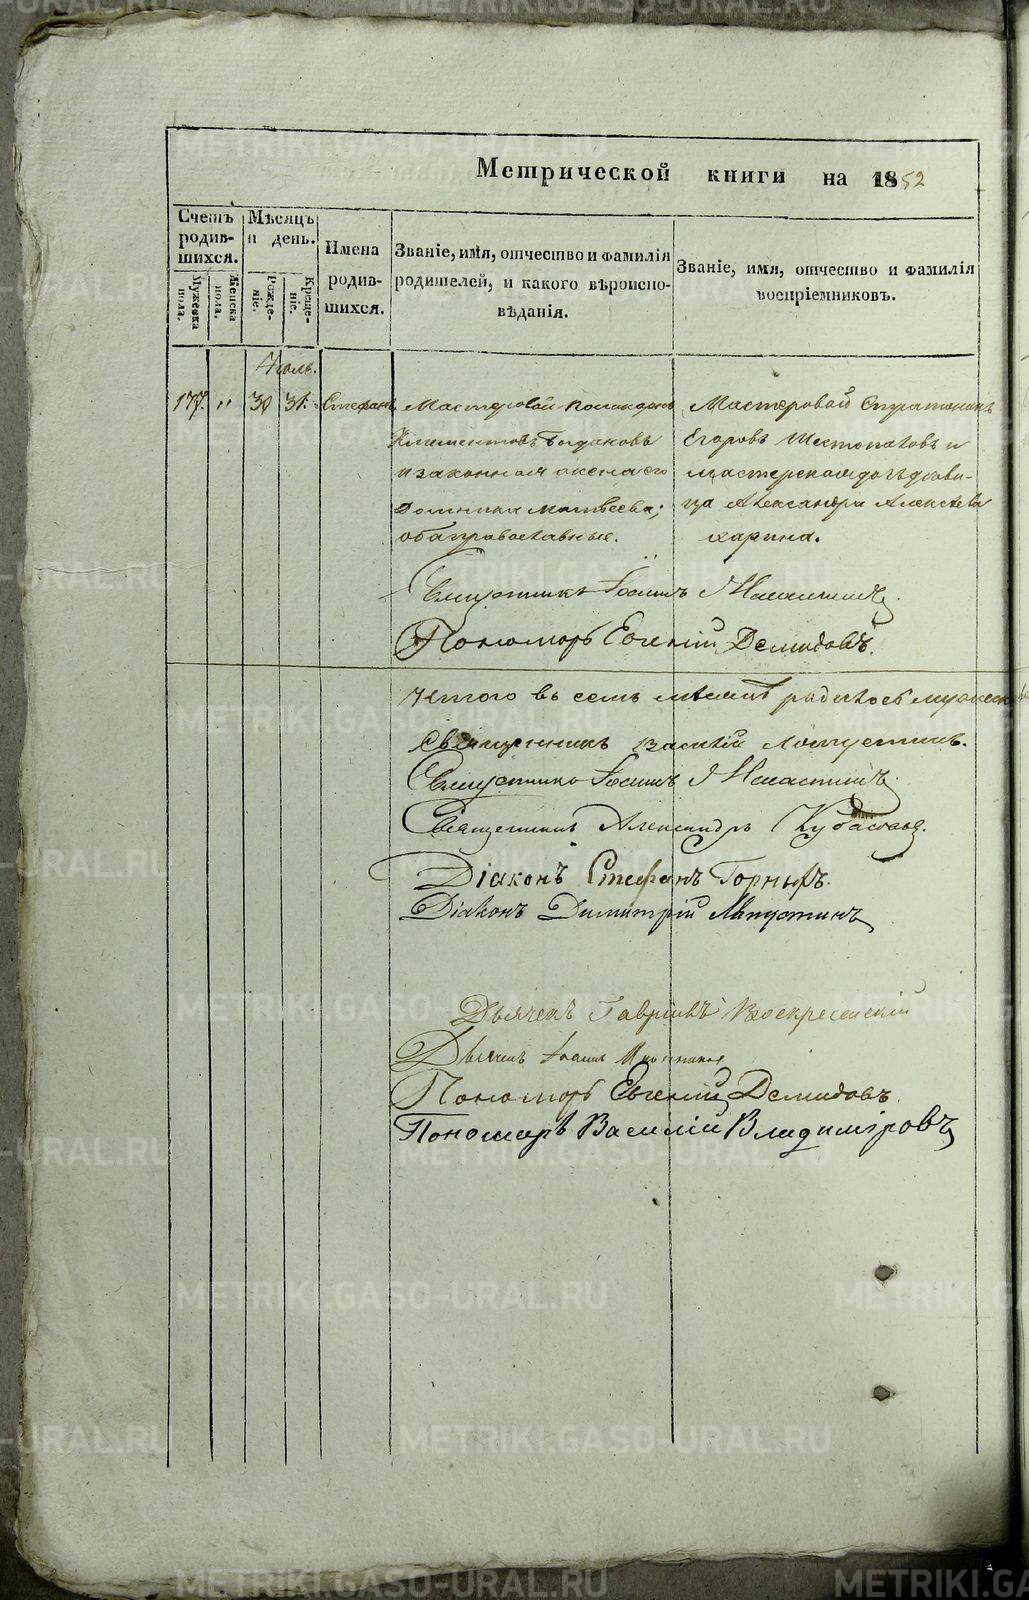 Метрической книги на 1852
Счетъ родившихся.
Мѣсяцъ и день.
Имена родившихся.
Званіе, имя, отчество и фамилія родителей, и какого вѣроисповѣданія.
Званіе, имя, отчество и фамилія воспріемниковъ.
Мужеска пола.
Женска пола.
Рожденіе.
Крещеніе.
Іюль.
177. " 30 31. Стефанъ
Мастеровой
Климентовъ Богдановъ
и законная жена его
Домника Матвеева;
оба православные.
Мастеровой Стратоникъ
Егоровъ Шестопаловъ и
мастерская дочь дѣви-
ца Александра Алексѣева
харина.
Священникъ Іоаннъ
Пономарь Евгеній Демидовъ.
Итого въ семъ мѣсяцѣ родилось мужеска
Священникъ Василій
Священникъ Іоаннъ
Священникъ Александръ Кубасовъ.
Діаконъ Стефанъ Горныхъ.
Діаконъ Димитрій Лапустинъ
Дьячекъ Гавріилъ Воскресенскій
Дьячекъ Іоаннъ
Пономарь Евгеній Демидовъ.
Пономарь Василій Владиміровъ
METRIKI.GASO-URAL.RU